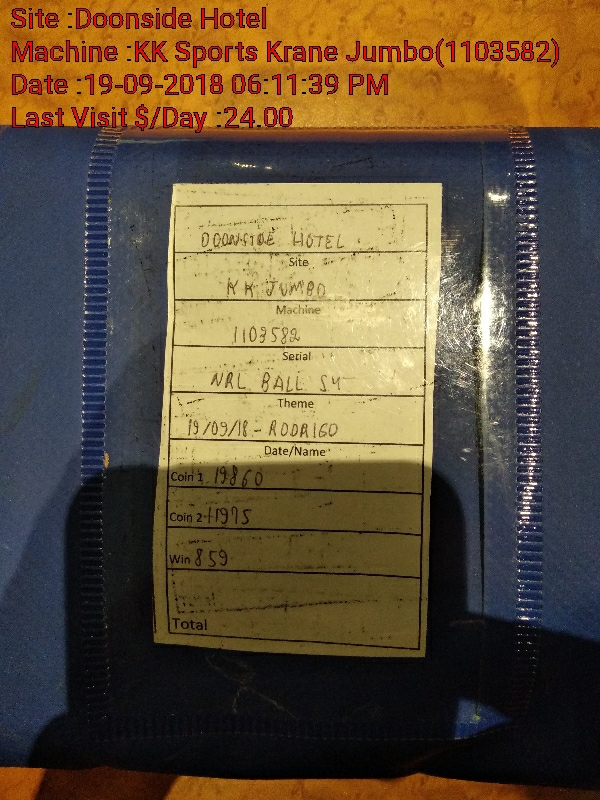 Site :Doonside Hotel
Machine :KK Sports Krane Jumbo(1103582)
Date :19-09-2018 06:11:39 PM
Last Visit $/Day :24.00
DOONSIDE HOTEL
Site
KK JUMBO
Machine
1103582
Serial
NRL BALL S4
Theme
19/09/18 - RODRIGO
Date/Name
Coin 1 19860
Coin 2 11975
Win 859
Total